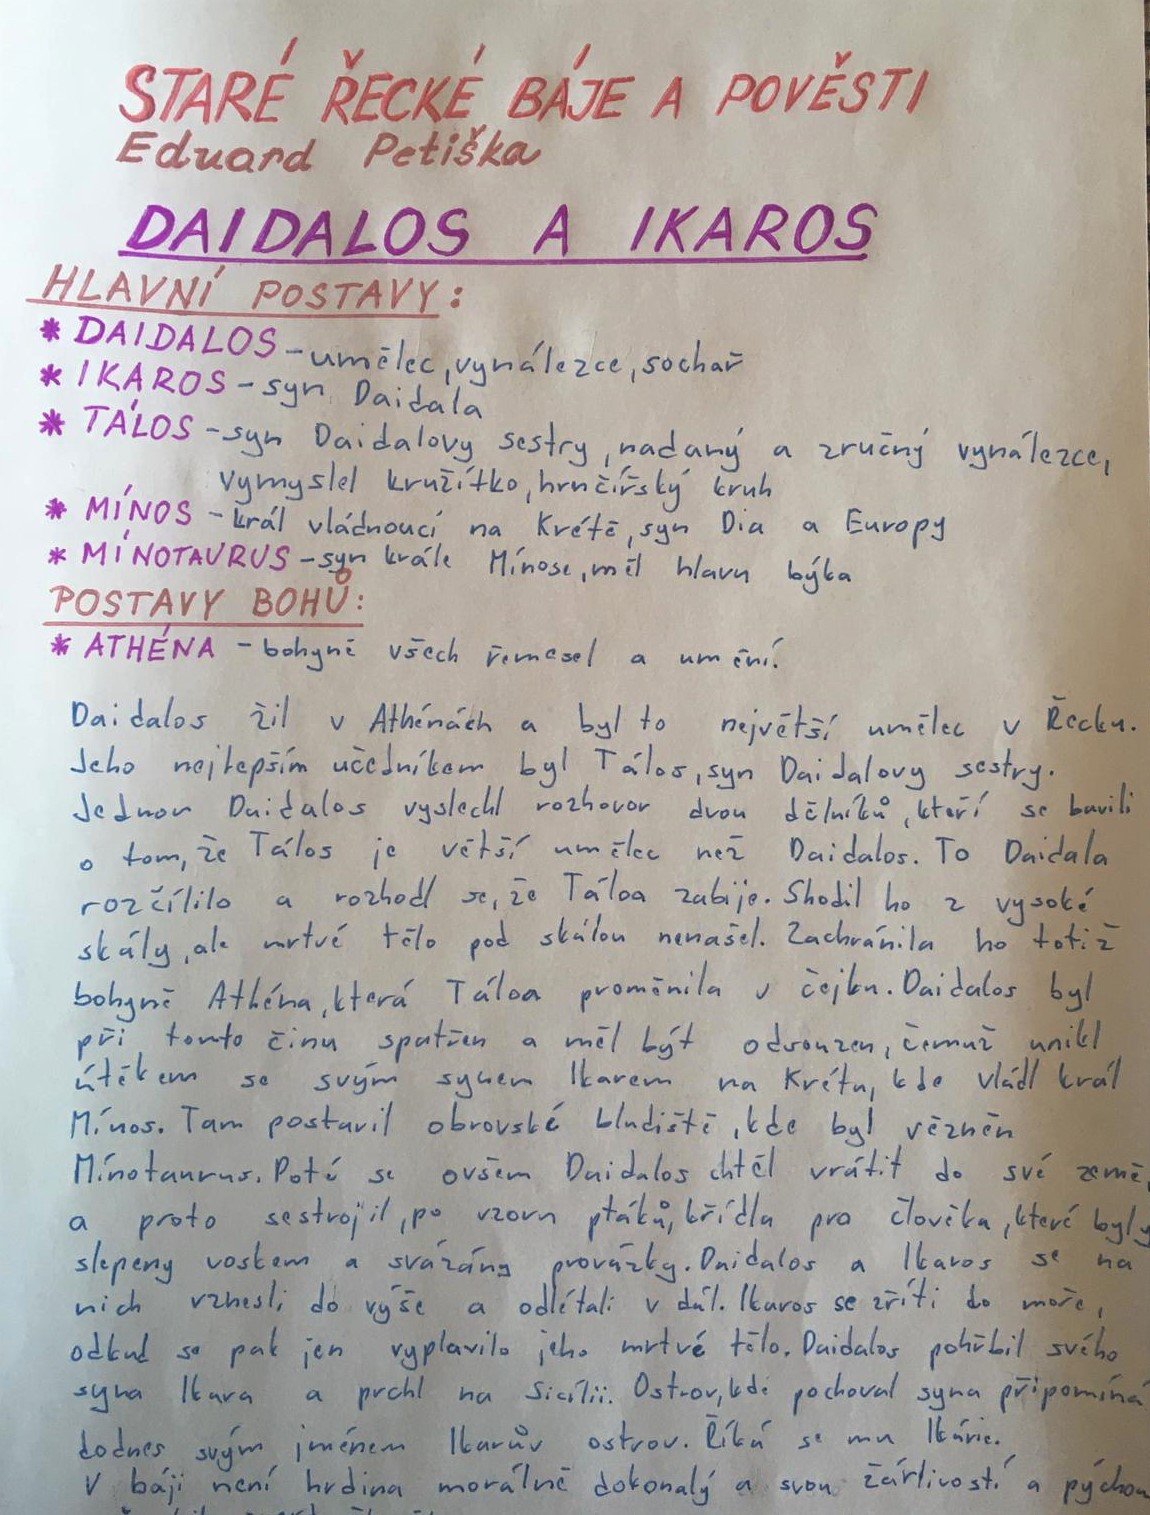 STARÉ ŘECKÉ BÁJE A POVĚSTI
Eduard Petiška
DAIDALOS A IKAROS
HLAVNÍ POSTAVY:
* DAIDALOS – umělec, vynálezce, sochař
* IKAROS – syn Daidala
* TÁLOS – syn Daidalovy sestry, nadaný a zručný vynálezce,
vymyslel kružítko, hrnčířský kruh
* MÍNOS – král vládnoucí na Krétě, syn Dia a Europy
* MÍNOTAURUS – syn krále Mínose, měl hlavu býka
POSTAVY BOHŮ:
* ATHÉNA – bohyně všech řemesel a umění.
Daidalos žil v Athénách a byl to největší umělec v Řecku.
Jeho nejlepším učedníkem byl Tálos, syn Daidalovy sestry.
Jednou Daidalos vyslechl rozhovor dvou dělníků, kteří se bavili
o tom, že Tálos je větší umělec než Daidalos. To Daidala
rozčílilo a rozhodl se, že Táloa zabije. Shodil ho z vysoké
skály, ale mrtvé tělo pod skálou nenašel. Zachránila ho totiž
bohyně Athéna, která Táloa proměnila v čejku. Daidalos byl
při tomto činu spatřen a měl být odsouzen, čemuž unikl
útěkem se svým synem Ikarem na Krétu, kde vládl král
Mínos. Tam postavil obrovské bludiště, kde byl vězněn
Mínotaurus. Poté se ovšem Daidalos chtěl vrátit do své země,
a proto sestrojil, po vzoru ptáků, křídla pro člověka, které byly
slepeny voskem a svázány provázky. Daidalos a Ikaros se na
nich vznesli do výše a odlétali v dál. Ikaros se zřítí do moře,
odkud se pak jen vyplavilo jeho mrtvé tělo. Daidalos pohřbil svého
syna Ikara a prchl na Sicílii. Ostrov, kde pochoval syna připomíná
dodnes svým jménem Ikarův ostrov. Říká se mu Ikárie.
V báji není hrdina morálně dokonalý a svou žárlivostí a pýchou